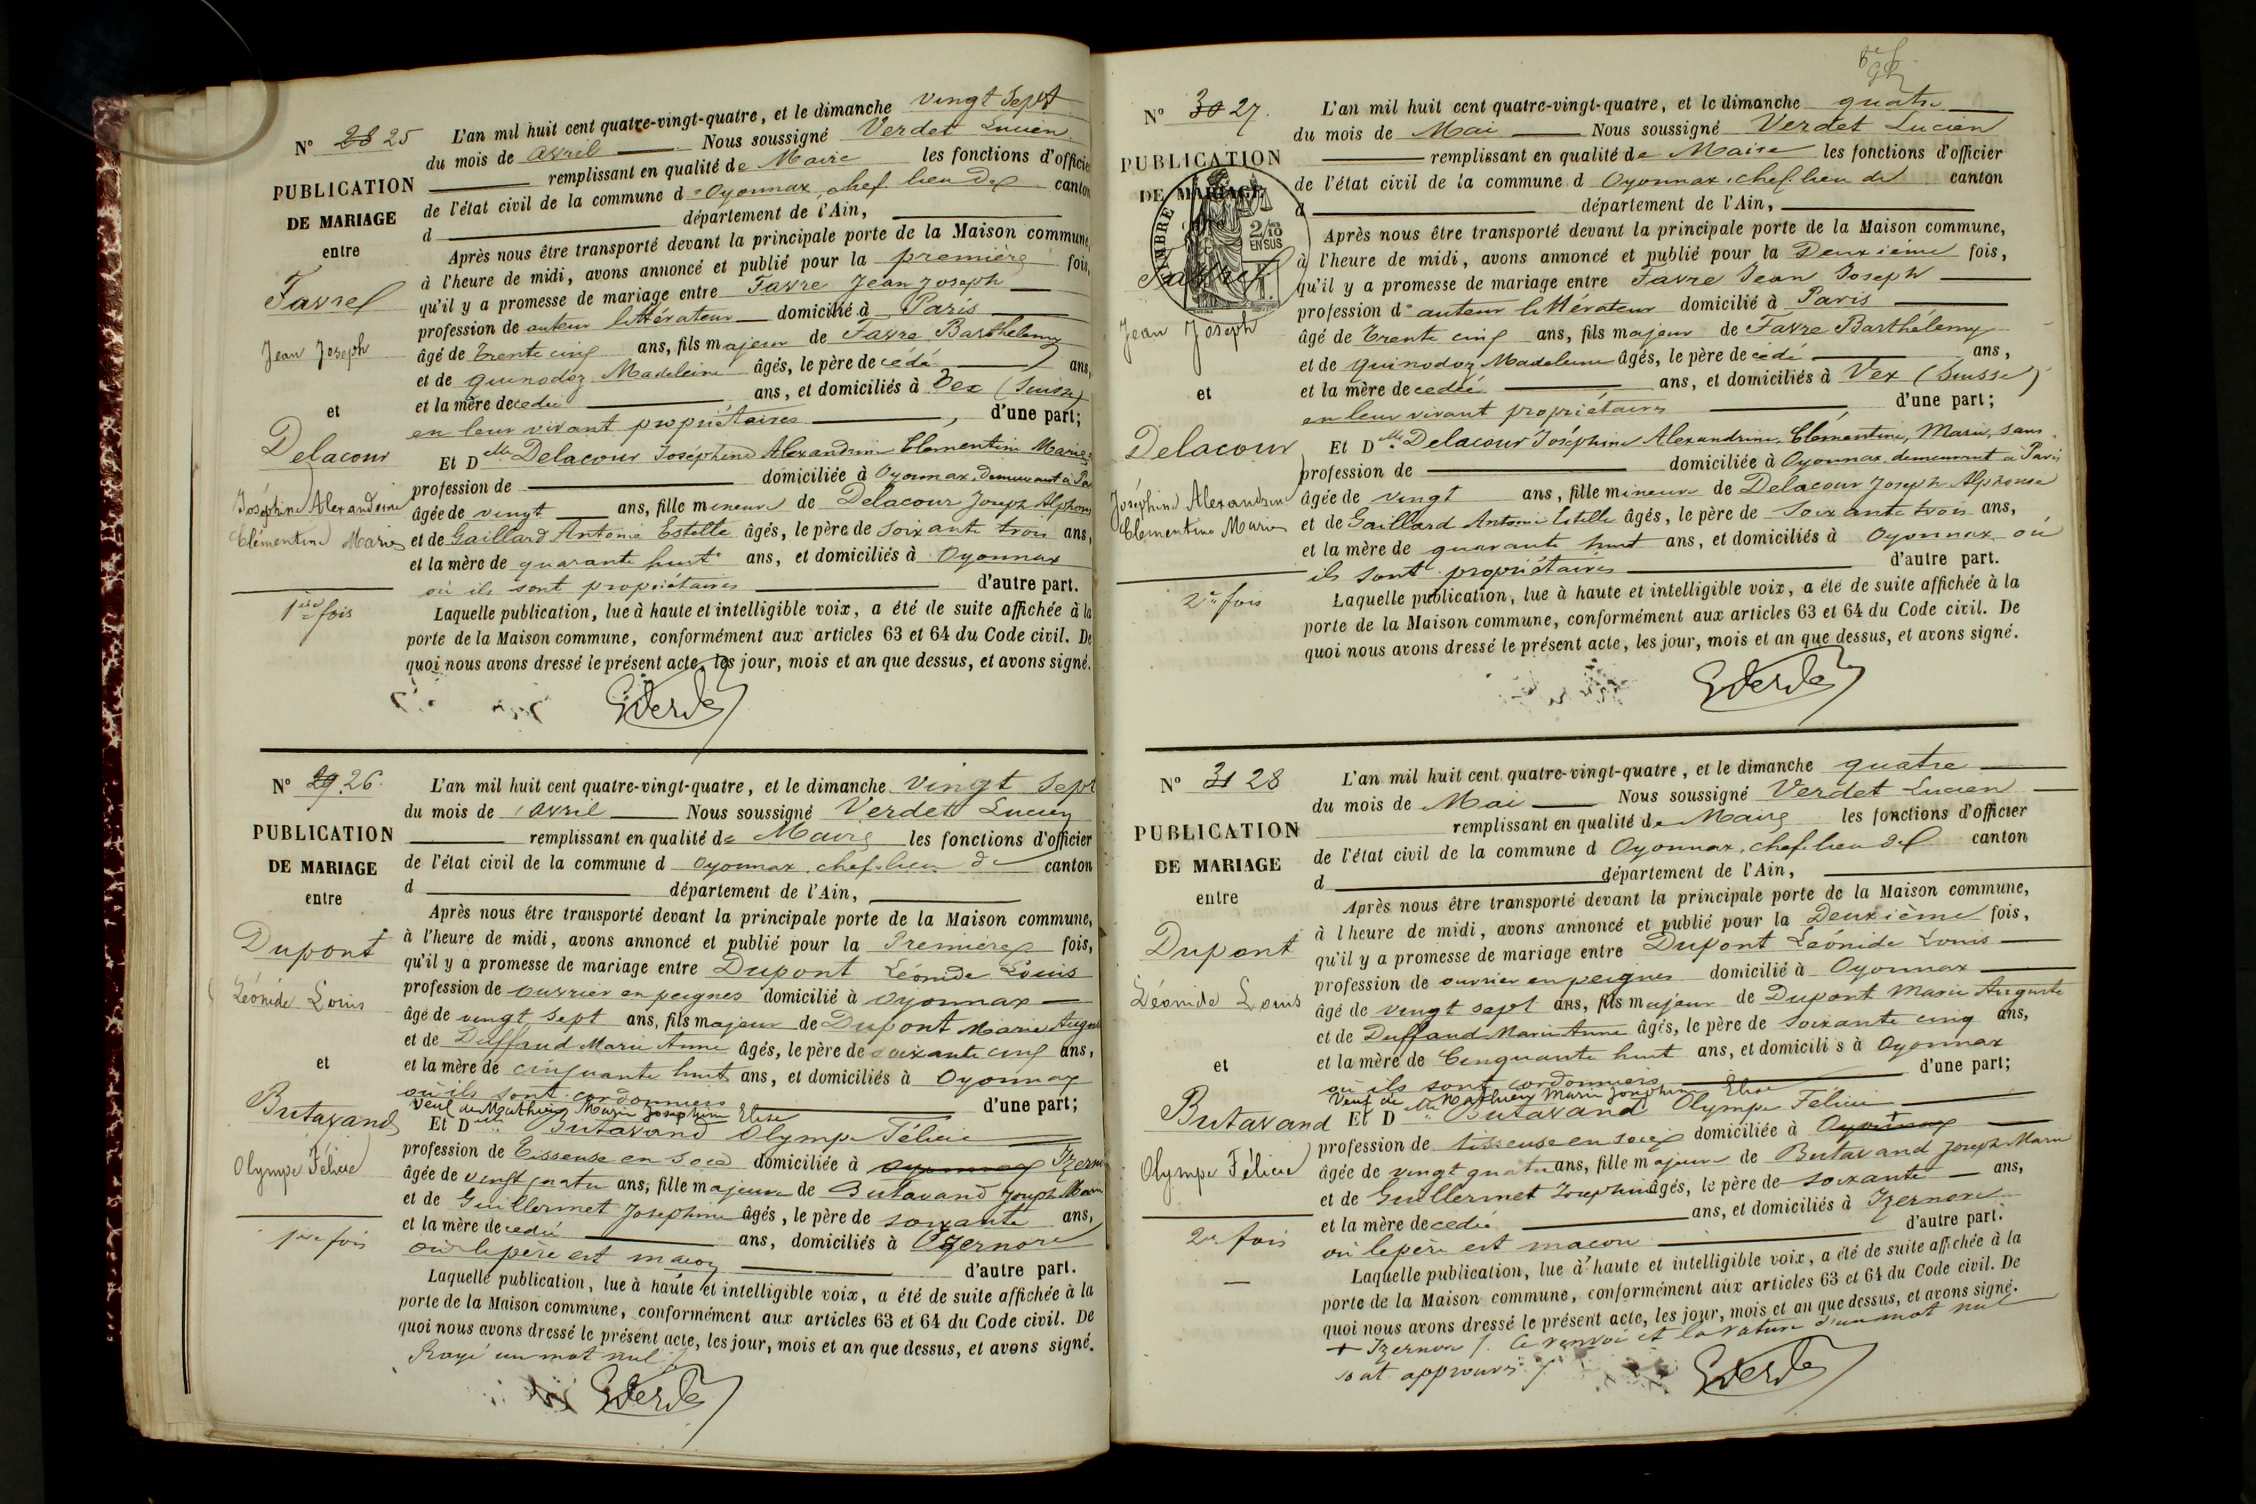 N° 28 25
PUBLICATION
DE MARIAGE
entre
Favre
Jean Joseph
et
Delacour
Joséphine Alexandrine
Clémentine Marie
1ière fois
L'an mil huit cent quatre-vingt-quatre, et le dimanche vingt sept
du mois de avril Nous soussigné Verdet Lucien
remplissant en qualité de Maire les fonctions d'officier
de l'état civil de la commune d'Oyonnax, chef lieu de canton
d département de l'Ain,
Après nous être transporté devant la principale porte de la Maison commune,
à l'heure de midi, avons annoncé et publié pour la première fois,
qu'il y a promesse de mariage entre Favre Jean Joseph
profession de auteur littérateur domicilié à Paris
âgé de trente cinq ans, fils majeur de Favre Barthélemy
et de Quinodoz Madeleine âgés, le père de cédé ans,
et la mère decedée ans, et domiciliés à Vex (Suisse)
en leur vivant propriétaires, d'une part;
Et Dlle Delacour Joséphine Alexandrine Clémentine Marie
profession de domiciliée à Oyonnax, demeurant à
âgée de vingt ans, fille mineure de Delacour Joseph Alphonse
et de Gaillard Antonie Estelle âgés, le père de soixante trois ans,
et la mère de quarante huit ans, et domiciliés à Oyonnax
où ils sont propriétaires d'autre part.
Laquelle publication, lue à haute et intelligible voix, a été de suite affichée à la
porte de la Maison commune, conformément aux articles 63 et 64 du Code civil. De
quoi nous avons dressé le présent acte, les jour, mois et an que dessus, et avons signé.
Verdet
N° 29 26
PUBLICATION
DE MARIAGE
entre
Dupont
Léonide Louis
et
Butavand
Olympe Félicie
1ière fois
L'an mil huit cent quatre-vingt-quatre, et le dimanche vingt sept
du mois de avril Nous soussigné Verdet Lucien
remplissant en qualité de Maire les fonctions d'officier
de l'état civil de la commune d Oyonnax, chef-lieu de canton
d département de l'Ain,
Après nous être transporté devant la principale porte de la Maison commune,
à l'heure de midi, avons annoncé et publié pour la Première fois,
qu'il y a promesse de mariage entre Dupont Léonide Louis
profession de ouvrier en peignes domicilié à Oyonnax
âgé de vingt sept ans, fils majeur de Dupont Marie Auguste
et de Duffaud Marie Anne âgés, le père de soixante cinq ans,
et la mère de cinquante huit ans, et domiciliés à Oyonnax
où ils sont cordonniers d'une part;
veuf de Mathieu Marie Joséphine Elise
Et Dlle Butavand Olympe Félicie
profession de Tisseuse en soie domiciliée à Oyonnax Izernore
âgée de vingt quatre ans, fille majeure de Butavand Joseph Marie
et de Guillermet Joséphine âgés, le père de soixante ans,
et la mère decedée ans, domiciliés à Izernore
où le père est maçon d'autre part.
Laquelle publication, lue à haute et intelligible voix, a été de suite affichée à la
porte de la Maison commune, conformément aux articles 63 et 64 du Code civil. De
quoi nous avons dressé le présent acte, les jour, mois et an que dessus, et avons signé.
Rayé un mot nul
Verdet
N° 30 27.
PUBLICATION
DE MARIAGE
TIMBRE
2/10 EN SUS
Favre
Jean Joseph
et
Delacour
Joséphine Alexandrine
Clémentine Marie
2e fois
L'an mil huit cent quatre-vingt-quatre, et le dimanche quatre
du mois de Mai Nous soussigné Verdet Lucien
remplissant en qualité de Maire les fonctions d'officier
de l'état civil de la commune d Oyonnax, chef lieu de canton
d département de l'Ain,
Après nous être transporté devant la principale porte de la Maison commune,
à l'heure de midi, avons annoncé et publié pour la Deuxième fois,
qu'il y a promesse de mariage entre Favre Jean Joseph
profession d'auteur littérateur domicilié à Paris
âgé de Trente cinq ans, fils majeur de Favre Barthélemy
et de Quinodoz Madeleine âgés, le père de cédé ans,
et la mère decedée ans, et domiciliés à Vex (Suisse)
en leur vivant propriétaires, d'une part;
Et Dlle Delacour Joséphine Alexandrine, Clémentine, Marie, sans
profession de domiciliée à Oyonnax demeurant à Paris
âgée de vingt ans, fille mineure de Delacour Joseph Alphonse
et de Gaillard Antonie Estelle âgés, le père de soixante trois ans,
et la mère de quarante huit ans, et domiciliés à Oyonnax où
ils sont propriétaires d'autre part.
Laquelle publication, lue à haute et intelligible voix, a été de suite affichée à la
porte de la Maison commune, conformément aux articles 63 et 64 du Code civil. De
quoi nous avons dressé le présent acte, les jour, mois et an que dessus, et avons signé.
Verdet
N° 31 28
PUBLICATION
DE MARIAGE
entre
Dupont
Léonide Louis
et
Butavand
Olympe Félicie
2e fois
L'an mil huit cent quatre-vingt-quatre, et le dimanche quatre
du mois de Mai Nous soussigné Verdet Lucien
remplissant en qualité de Maire les fonctions d'officier
de l'état civil de la commune d Oyonnax, chef-lieu de canton
d département de l'Ain,
Après nous être transporté devant la principale porte de la Maison commune,
à l'heure de midi, avons annoncé et publié pour la Deuxième fois,
qu'il y a promesse de mariage entre Dupont Léonide Louis
profession de ouvrier en peignes domicilié à Oyonnax
âgé de vingt sept ans, fils majeur de Dupont Marie Auguste
et de Duffaud Marie Anne âgés, le père de soixante cinq ans,
et la mère de Cinquante huit ans, et domiciliés à Oyonnax
où ils sont cordonniers d'une part;
veuf de Mathieu Marie Joséphine Elise
Et Dlle Butavand Olympe Félicie
profession de tisseuse en soie domiciliée à Oyonnax +
âgée de vingt quatre ans, fille majeure de Butavand Joseph Marie
et de Guillermet Joséphine âgés, le père de soixante ans,
et la mère decedée ans, et domiciliés à Izernore
où le père est maçon d'autre part.
Laquelle publication, lue à haute et intelligible voix, a été de suite affichée à la
porte de la Maison commune, conformément aux articles 63 et 64 du Code civil. De
quoi nous avons dressé le présent acte, les jour, mois et an que dessus, et avons signé.
+ Izernore /. Ce renvoi et la rature d'un mot nul
sont approuvés /.
Verdet